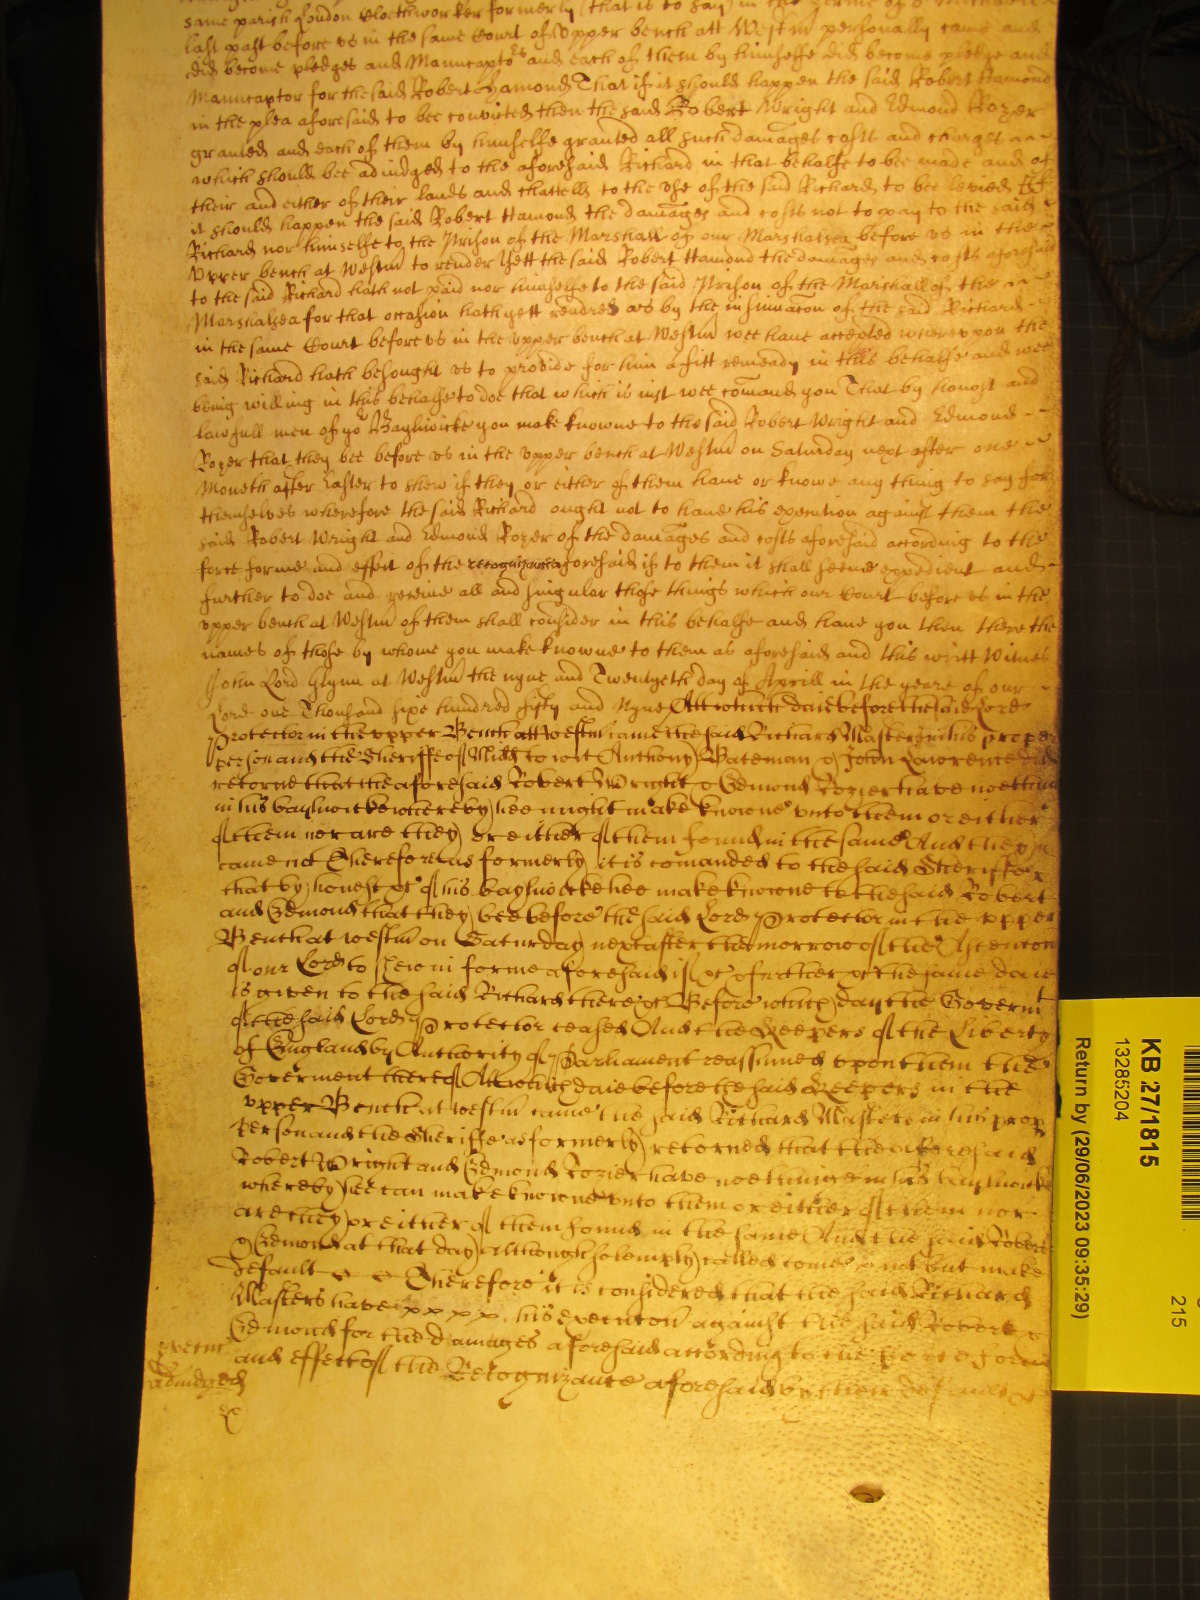 same parish London Clothworker formerly (that is to say) in the Terme of St Michaell
last past before us in the same Court of Upper bench att Westm personally came and
did become pledges and Manucaptors and each of them by himselfe did become pledge and
Manucaptor for the said Robert Hamond That if it should happen the said Robert Hamond
in the plea aforesaid to bee convicted then the said Robert Wright and Edmond Rozer
granted and each of them by himselfe granted all such damages costs and charges
which should bee adiudged to the aforesaid Richard in that behalfe to bee made and of
their and either of their lands and chattells to the use of the said Richard to bee levied If
it should happen the said Robert Hamond the damages and costs not to pay to the said
Richard nor himselfe to the Prison of the Marshall of our Marshalsea before us in the
Upper bench at Westm to render Yett the said Robert Hamond the damages and costs aforesaid
to the said Richard hath not paid nor himselfe to the said Prison of the Marshall of the
Marshalsea for that occasion hath yett rendred as by the insinuacon of the said Richard
in the same Court before us in the upper bench at Westm wee have accepted whereupon the
said Richard hath besought us to provide for him a fitt remeady in this behalfe and wee
being willing in this behalfe to doe that which is iust wee comand you That by honest and
lawfull men of yor Bayliwicke you make knowne to the said Robert Wright and Edmond
Rozer that they bee before us in the upper bench at Westm on Saturday next after one
Moneth after Easter to shew if they or either of them have or knowe any thing to say for
themselves wherefore the said Richard ought not to have his execution against them the
said Robert Wright and Edmond Rozer of the damages and costs aforesaid according to the
force forme and effect of the recognizance aforesaid if to them it shall seeme expedient and
further to doe and receive all and singular those things which our Court before us in the
upper bench at Westm of them shall consider in this behalfe and have you then there the
names of those by whome you make knowne to them as aforesaid and this writt Witnes
John Lord Glynn at Westm the nyne and Twentyeth day of Aprill in the yeare of our
Lord one Thousand sixe hundred fifty and Nyne Att which daie before the said Lord
Protector in the upper Bench att westm came the said Richard Masters in his proper
person and the Sheriffe of Midd to wit Anthony Bateman & John Lawrence did
retorne that the aforesaid Robert Wright & Edmond Rozier have nothing
in his bayliwicke whereby hee might make knowne unto them or either
of them nor are they or either of them found in the same And they
came not Therefore as formerly it is comanded to the said Sheriffe
that by honest &c of his bayliwicke hee make knowne to the said Robert
and Edmond that they bee before the said Lord Protector in the upper
Bench at westm on Saturday next after the morrow of the Ascention
of our Lord to shew in forme aforesaid if &c & further &c the same daie
is given to the said Richard there &c Before which day the Governmt
of the said Lord Protector ceased And the Keepers of the Liberty
of England by Authority of Parliament reassumed upon them the
Goverment thereof Att which daie before the said Keepers in the
upper Bench at westm came the said Richard Masters in his prop
person and the Sheriffe as formerly retorned that the aforesaid
Robert Wright and Edmond Rozier have nothinge in his bayliwicke
whereby hee can make knowne unto them or either of them nor
are they or either of them found in the same And the said Robert
& Edmond at that day although solemply called come not but make
default Therefore it is considered that the said Richard
Masters have his execucon against the said Robert &
Edmond for the damages aforesaid according to the force forme
and effect of the Recognizance aforesaid by their default &c
adiudged
KB 27/1815
13285204
Return by (29/06/2023 09:35:29)
215